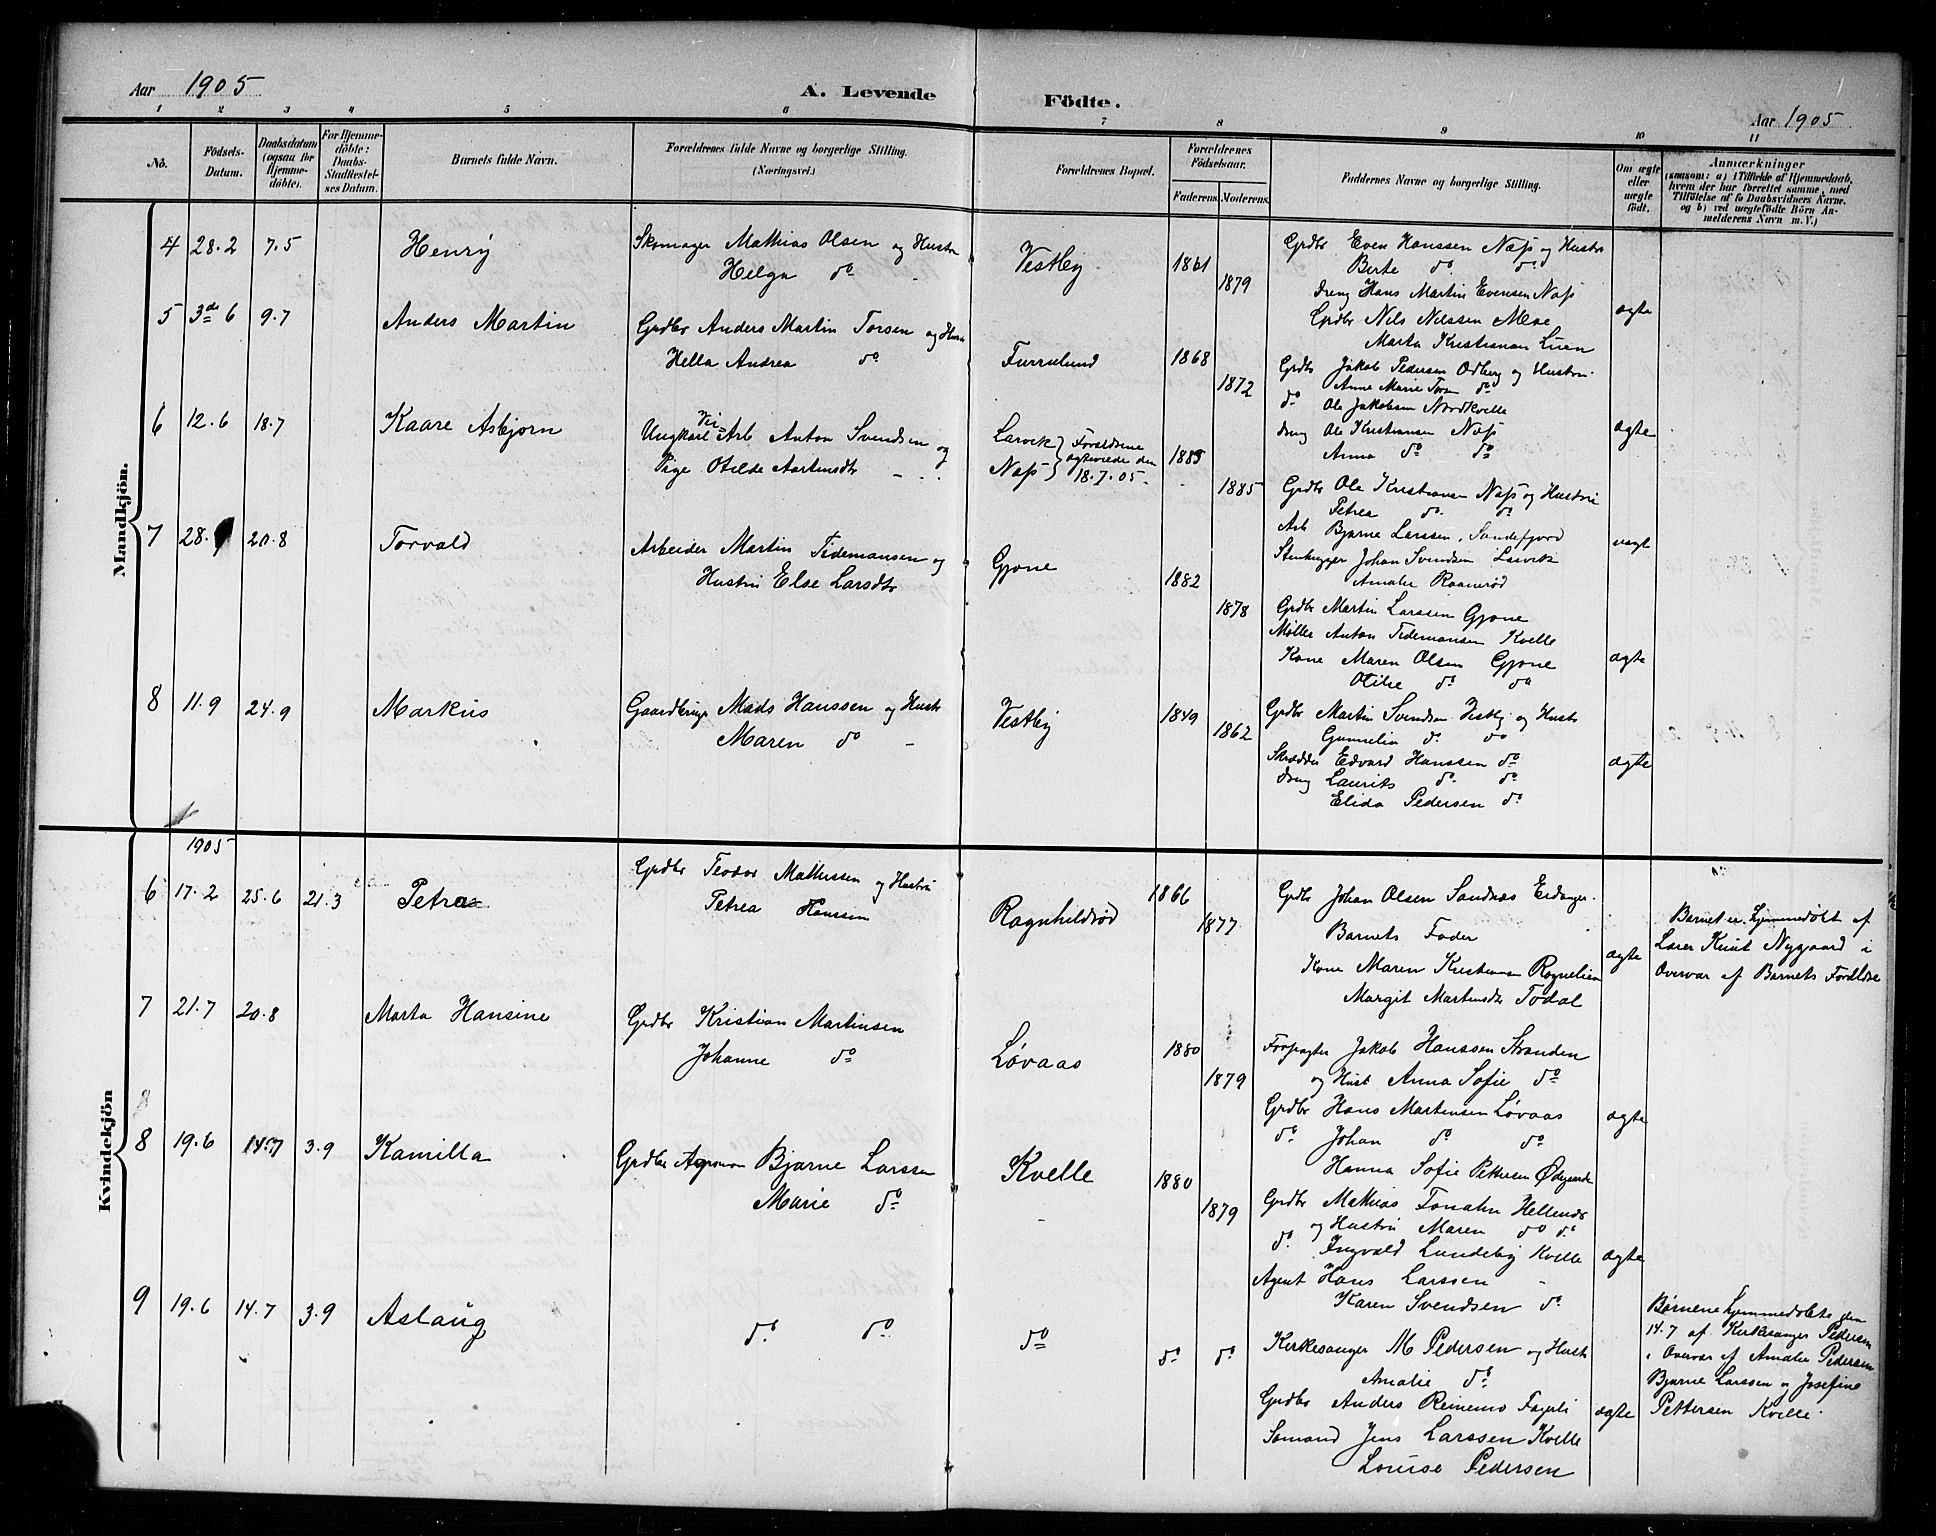 Aar 1905
A. Levende Födte.
Aar 1905
1 2 3 4 5 6 7 8 9 10 11
No.
Födsels-Datum.
Daabsdatum (ogsaa for Hjemme-döbte).
For Hjemme-döbte: Daabs-Stadfæstelses Datum.
Barnets fulde Navn.
Forældrenes fulde Navne og borgerlige Stilling. (Næringsvei.)
Forældrenes Bopæl.
Forældrenes Födselsaar.
Faderens. Moderens.
Faddernes Navne og borgerlige Stilling.
Om ægte eller uægte födt.
Anmærkninger
(saasom: a) i Tilfælde af Hjemmedaab, hvem der har forrettet samme, med Tilföielse af to Daabsvidners Navne, og b) ved uægtefödte Börn Anmelderens Navn m. V.)
Mandkjön.
4 28.2 7.5 Henry
Skomager Mathias Olsen og Hustru
Helga do
Vestby 1861 1879
Grdbr Even Hanssen Næss og Hustru
Berte do do
dreng Hans Martin Evensen Næss
Grdbr Nils Nilssen Moe
Marta Kristiansen Lien
ægte
5 3de 6 9.7 Anders Martin
Grdbr Anders Martin Torsen og Hustru
Hella Andrea do
Furrulund 1868 1872
Grdbr Jakob Pedersen Odberg og Hustru
Anne Marie do
do Ole Jakobsen Nordkvelle
dreng Ole Kristiansen Næss
Anna do do
ægte
6 12.6 18.7 Kaare Asbjørn
Ungkarl Arb Anton Svendsen og
Pige Otilde Martinsdtr
Larvik
Næss
Forældrene ægteviede den 18.7.05
1885 1885
Grdbr Ole Kristiansen Næss og Hustru
Petrea do do
Arb Bjarne Larssen, Sandefjord
Stenhugger Johan Svendsen Larvik
Amalie
uægt
7 28. 20.8 Torvald
Arbeider Martin Tidemansen og
Hustru Else Larsdtr
Gjone 1882 1878
Grdbr Martin Larssen Gjone
Møller Anton Tidemansen Kvelle
Kone Maren Olsen Gjone
Otilie do do
ægte
8 11.9 24.9 Markus
Gaardbruger Mads Hanssen og Hustr
Maren do
Vestby 1849 1862
Grdbr Martin Svendsen Vestby og Hustr
Gunnelia do do
Skrædder Edvard Hanssen do
dreng Laurits do do
Elida Pedersen do
ægte
Kvindekjön
1905
6 17.2 25.6 21.3 Petra
Grdbr Teodor Mathissen og Hustru
Petrea Hanssen
Ragnhildrød 1866 1877
Grdbr Johan Olsen Sandaas Eidanger
Barnets Fader
Kone Maren Kristiansen Rognelien
Margit Martinsdtr Todal
ægte
Barnet er hjemmedøbt af
Lærer Knut Nygaard i
Overvær af Barnets Forældre
7 21.7 20.8 Marta Hansine
Grdbr Kristian Martinsen
Johanne do
Løvaas 1880 1879
Forpagter Jakob Hanssen Stranden
og Hust Anna Sofie do
Grdbr Hans Martinsen Løvaas
do Johan do do
Hanna Sofie Pettersen Ødegaarde
ægte
8
8 19.6 14.7 3.9 Kamilla
Grdbr Agronom Bjarne Larssen
Marie do
Kvelle 1880 1879
Grdbr Mathias
og Hustru Maren do do
do Ingvald Lundeby Kvelle
Agent Hans Larssen
Karen Svendsen do
ægte
9 19.6 14.7 3.9 Aslaug
do do
do
do do
Kirkesanger M Pedersen og Hustr
Amalie do
Grdbr Anders Reinemo Fagerli
Sømand Jens Larssen Kvelle
Louise Pedersen
ægte
Børnene hjemmedøbte den
14.7 af Kirkesanger Pedersen
i Overvær af Amalie Pedersen
Bjarne Larssen og Josefine
Pettersen Kvelle.